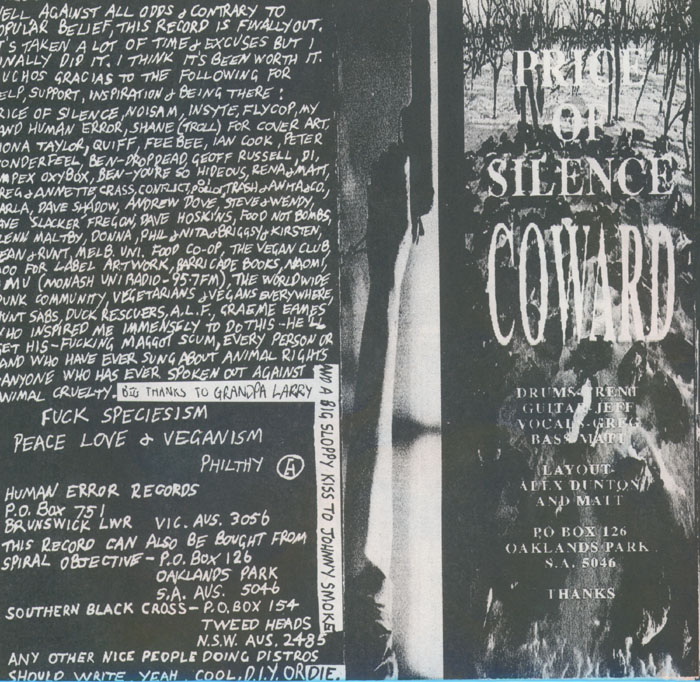 ELL AGAINST ALL ODDS & CONTRARY TO
OPULAR BELIEF, THIS RECORD IS FINALLY OUT.
T'S TAKEN A LOT OF TIME & EXCUSES BUT I
INALLY DID IT. I THINK IT'S BEEN WORTH IT.
UCHOS GRACIAS TO THE FOLLOWING FOR
ELP, SUPPORT, INSPIRATION & BEING THERE:
RICE OF SILENCE, NOISAM, INSYTE, FLYCOP, MY
AND HUMAN ERROR, SHANE (TROLL) FOR COVER ART,
IONA TAYLOR, QUIFF, FEE BEE, IAN COOK, PETER
ONDERFEEL, BEN-DROPDEAD GEOFF RUSSELL, DI,
MPEX OXYBOX, BEN-YOU'RE SO HIDEOUS, RENA & MATT,
REG & ANNETTE, CRASS, CONFLICT, TRASH & ANITA & CO,
ARLA, DAVE SHADOW, ANDREW DOVE, STEVE & WENDY,
AVE 'SLACKER' FREGON, DAVE HOSKINS, FOOD NOT BOMBS,
LENN MALTBY, DONNA, PHIL & NITA & BRIGGSY & KIRSTEN,
EAN & RUNT, MELB. UNI. FOOD CO-OP, THE VEGAN CLUB,
OO FOR LABEL ARTWORK, BARRICADE BOOKS, NAOMI,
MU (MONASH UNI RADIO - 95.7FM), THE WORLDWIDE
UNK COMMUNITY, VEGETARIANS & VEGANS EVERYWHERE,
UNT SABS, DUCK RESCUERS, A.L.F., GRAEME EAMES
WHO INSPIRED ME IMMENSELY TO DO THIS - HE'LL
GET HIS - FUCKING MAGGOT SCUM, EVERY PERSON OR
AND WHO HAVE EVER SUNG ABOUT ANIMAL RIGHTS
ANYONE WHO HAS EVER SPOKEN OUT AGAINST
NIMAL CRUELTY. BIG THANKS TO GRANDPA LARRY
AND A BIG SLOPPY KISS TO JOHNNY SMOKE
FUCK SPECIESISM
PEACE LOVE & VEGANISM
PHILTHY Ⓐ
HUMAN ERROR RECORDS
P.O. BOX 751
BRUNSWICK LWR VIC. AUS. 3056
THIS RECORD CAN ALSO BE BOUGHT FROM
SPIRAL OBJECTIVE - P.O. BOX 126
OAKLANDS PARK
S.A. AUS. 5046
SOUTHERN BLACK CROSS - P.O. BOX 154
TWEED HEADS
N.S.W. AUS. 2485
ANY OTHER NICE PEOPLE DOING DISTROS
SHOULD WRITE YEAH. COOL. D.I.Y. OR DIE.
PRICE
OF
SILENCE
COWARD
DRUMS-TRENT
GUITAR-JEFF
VOCALS-GREG
BASS-MATT
LAYOUT-
ALEX DUNTON
AND MATT
PO BOX 126
OAKLANDS PARK
S.A. 5046
THANKS